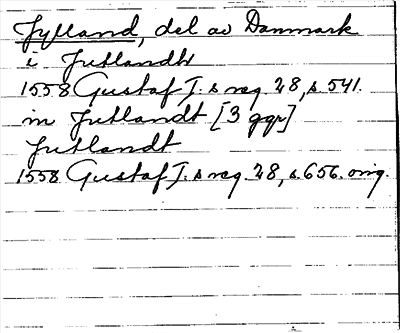 Jylland, del av Danmark
i Jutlandh
1558 Gustaf I:s reg. 28, s. 541.
in Jutlandt [3 ggr]
Jutlandt
1558 Gustaf I:s reg. 28, s. 656. orig.